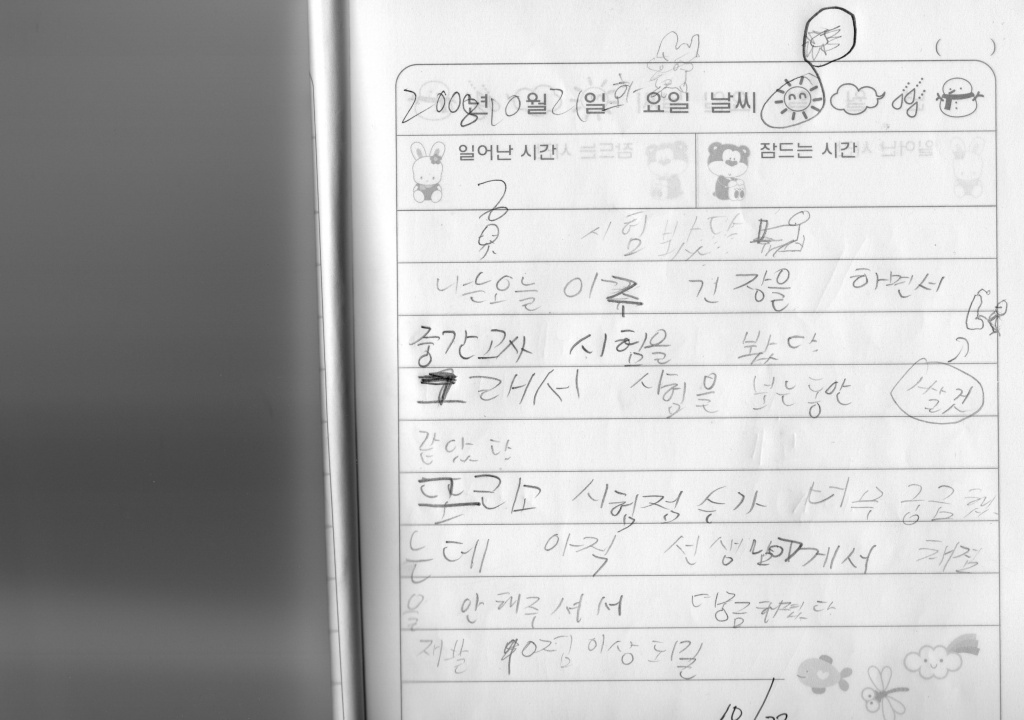 ( )
2009년 10월 21일 화요일 날씨
일어난 시간 잠드는 시간
시험 봤다
나는오늘 아주 긴장을 하면서
중간고사 시험을 봤다
그래서 시험을 보는동안 쌀것
같았다
그리고 시험점수가 너무 궁금했
는데 아직 선생님께서 채점
을 안해주셔서 궁금하였다
제발 90점이상 되길
10/22